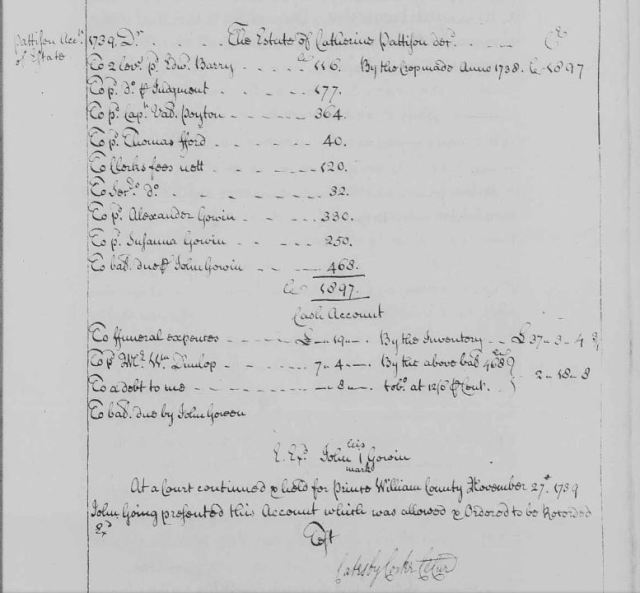 Pattison Accᵗ. of Estate
1739. Dʳ. The Estate of Catherine Pattison decᵈ. Cʳ
To 2 levᵉ. pᵈ. Edwᵈ. Barry 116. By the Crop made Anno 1738. 1897
To pᵈ. Dᵒ. Judgment 177.
To pᵈ. Capᵗ. Val. Peyton 364.
To pᵈ. Thomas fford 40.
To Clerks fees nett 120.
To Serᵗ. dᵒ. 32.
To pᵈ. Alexander Gowin 330.
To pᵈ. Susanna Gowin 250.
To baˡ. due John Gowin 468.
1897.
Cash Account
To ffuneral expences £ - 19 - By the Inventory £ 37 - 3 - 4
To pᵈ Mʳ. Wᵐ. Dunlop 7 - 4 - By the above baˡ 468
To a debt to me - 8 - tobᵒ. at 12/6 Cent. 2 - 18 - 8
To baˡ. due by John Gowen
E. Exᵈ. John his I mark Gowin
At a Court continued & held for Prince William County November 27ᵗʰ. 1739
John Going presented this Account which was allowed & Ordered to be Recorded
Exᵈ
Test
Catesby Cocke ClCur